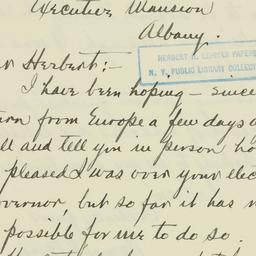 Executive Mansion
Albany.
HERBERT H. LEHMAN PAPERS
N. Y. PUBLIC LIBRARY COLLECT
r Herbert:-
I have been hoping - since
urn from Europe a few days a
ll and tell you in person, ho
pleased I was over your elec
overnor, but so far it has n
possible for me to do so.